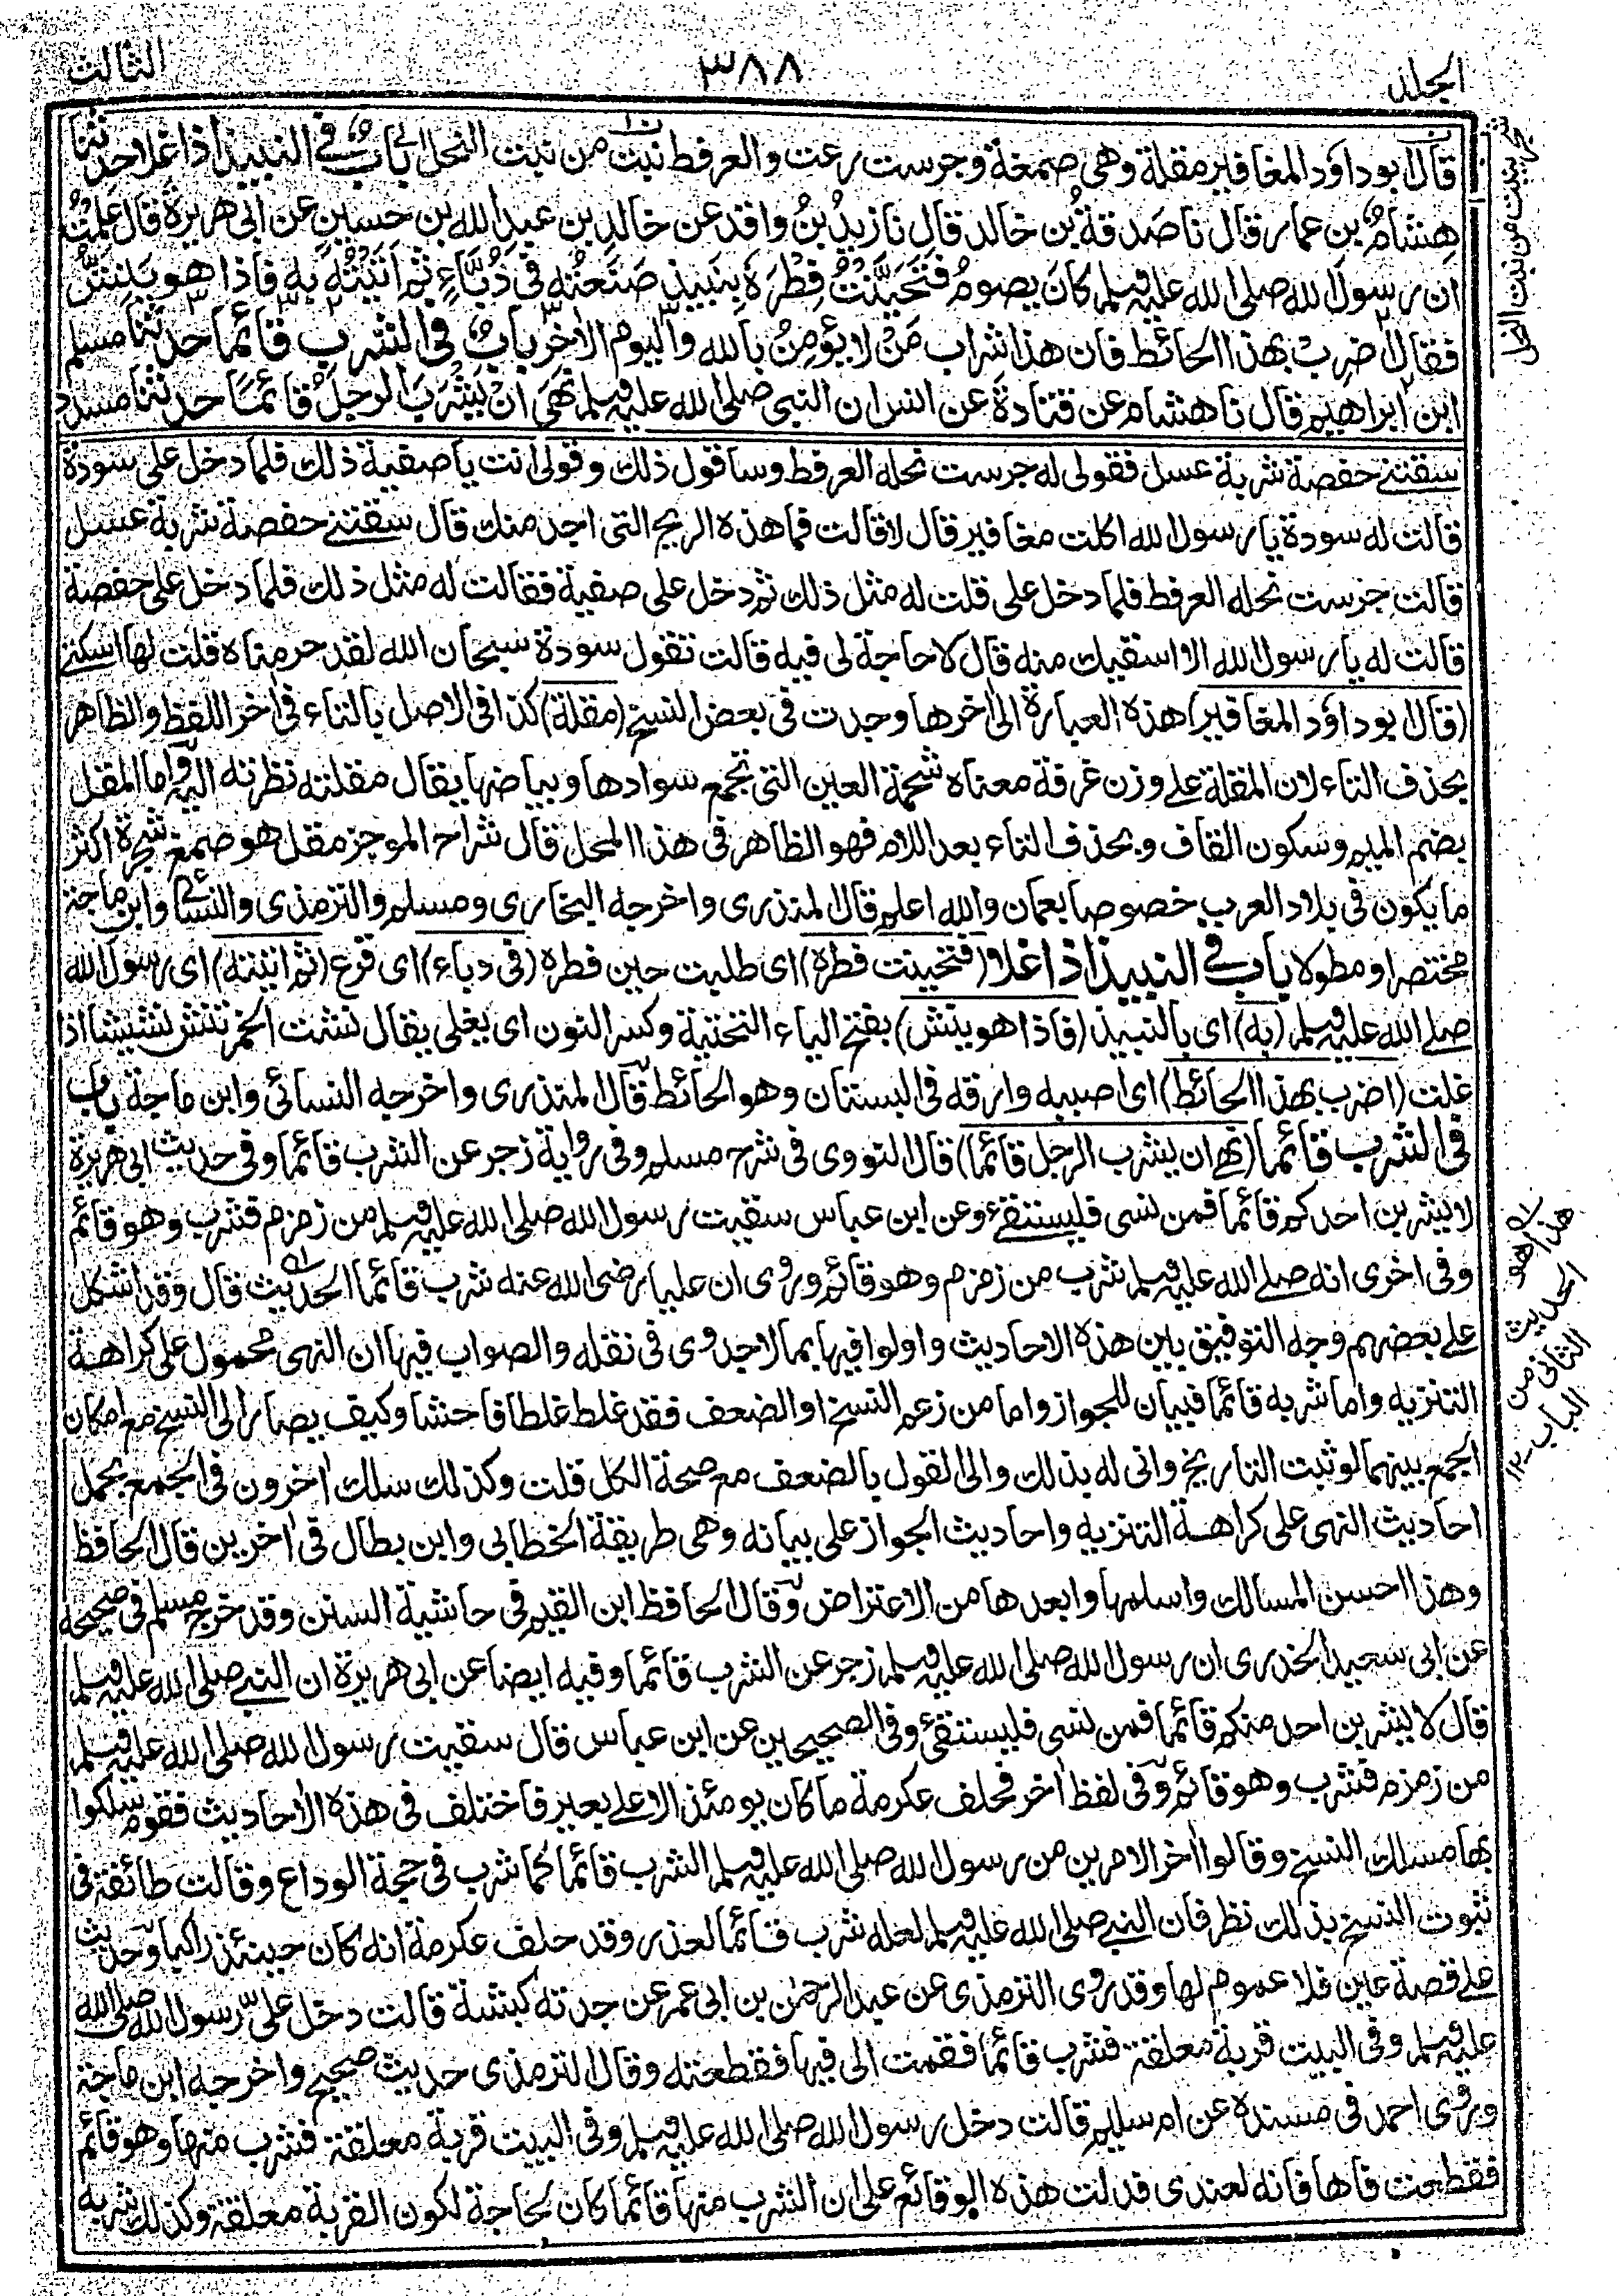 الجلد
٣٨٨
الثالث
قال ابوداؤد المغافير مقلة وهي صمغة وجرست رعت والعرفط نبت من نبت النحل باب في النبيذ اذا غلا حدثنا
هشام بن عمار قال نا صدقة بن خالد قال نا زيد بن واقد عن خالد بن عبد الله بن حسين عن ابي هريرة قال علمت
ان رسول الله صلى الله عليه وسلم كان يصوم فتحينت فطره بنبيذ صنعته في دباء ثم اتيته به فاذا هو ينش
فقال اضرب بهذا الحائط فان هذا شراب من لا يؤمن بالله واليوم الاخر باب في الشرب قائما حدثنا مسلم
ابن ابراهيم قال نا هشام عن قتادة عن انس ان النبي صلى الله عليه وسلم نهى ان يشرب الرجل قائما حدثنا مسدد
سقتني حفصة شربة عسل فقولي له جرست نحله العرفط وساقول ذلك وقولي انت يا صفية ذلك فلما دخل على سودة
قالت له سودة يا رسول الله اكلت مغافير قال لا قالت فما هذه الريح التى اجد منك قال سقتني حفصة شربة عسل
قالت جرست نحله العرفط فلما دخل على قلت له مثل ذلك ثم دخل على صفية فقالت له مثل ذلك فلما دخل على حفصة
قالت له يا رسول الله الا اسقيك منه قال لا حاجة لى فيه قالت تقول سودة سبحان الله لقد حرمناه قلت لها اسكتي
(قال ابو داؤد المغافير) هذه العبارة الى اخرها وجدت في بعض النسخ (مقلة) كذا في الاصل بالتاء في اخر اللفظ والظاهر
بحذف التاء لان المقلة على وزن غرفة معناه شحمة العين التى تجمع سوادها وبياضها يقال مقلته نظرته اليه واما المقل
بضم الميم وسكون القاف وبحذف التاء بعد اللام فهو الظاهر في هذا المحل قال شراح الموجز مقل هو صمغ شجرة اكثر
ما يكون في بلاد العرب خصوصا بعمان والله اعلم قال المنذرى واخرجه البخارى ومسلم والترمذى والنسائى وابن ماجة
مختصرا ومطولا باب في النبيذ اذا غلا (فتحينت فطره) اى طلبت حين فطره (في دباء) اى قرع (ثم اتيته) اى رسول الله
صلى الله عليه وسلم (به) اى بالنبيذ (فاذا هو ينش) بفتح الياء التحتية وكسر النون اى يغلى يقال نشت الخمر تنش نشيشا اذا
غلت (اضرب بهذا الحائط) اى اصببه وارقه في البستان وهو الحائط قال المنذرى واخرجه النسائى وابن ماجة باب
في الشرب قائما (نهى ان يشرب الرجل قائما) قال النووى في شرح مسلم وفى رواية زجر عن الشرب قائما وفى حديث ابى هريرة
لا يشربن احدكم قائما فمن نسى فليستقئ وعن ابن عباس سقيت رسول الله صلى الله عليه وسلم من زمزم فشرب وهو قائم
وفى اخرى انه صلى الله عليه وسلم شرب من زمزم وهو قائم وروى ان عليا رضى الله عنه شرب قائما الحديث قال وقد اشكل
على بعضهم وجه التوفيق بين هذه الاحاديث واولوا فيها بما لا جدوى في نقله والصواب فيها ان النهى محمول على كراهة
التنزيه واما شربه قائما فبيان للجواز واما من زعم النسخ او الضعف فقد غلط غلطا فاحشا وكيف يصار الى النسخ مع امكان
الجمع بينهما لو ثبت التاريخ وانى له بذلك والى القول بالضعف مع صحة الكل قلت وكذلك سلك اخرون في الجمع بحمل
احاديث النهى على كراهة التنزيه واحاديث الجواز على بيانه وهى طريقة الخطابى وابن بطال في اخرين قال الحافظ
وهذا احسن المسالك واسلمها وابعدها من الاعتراض وقال الحافظ ابن القيم في حاشية السنن وقد خرج مسلم في صحيحه
عن ابى سعيد الخدرى ان رسول الله صلى الله عليه وسلم زجر عن الشرب قائما وفيه ايضا عن ابى هريرة ان النبي صلى الله عليه وسلم
قال لا يشربن احد منكم قائما فمن نسى فليستقئ وفى الصحيحين عن ابن عباس قال سقيت رسول الله صلى الله عليه وسلم
من زمزم فشرب وهو قائم وفى لفظ اخر فحلف عكرمة ما كان يومئذ الا على بعير فاختلف في هذه الاحاديث فقوم سلكوا
بها مسلك النسخ وقالوا اخر الامرين من رسول الله صلى الله عليه وسلم الشرب قائما كما شرب في حجة الوداع وقالت طائفة في
ثبوت النسخ بذلك نظر فان النبي صلى الله عليه وسلم لعله شرب قائما لعذر وقد حلف عكرمة انه كان حينئذ راكبا وحديث
على قصة عين فلا عموم لها وقد روى الترمذى عن عبد الرحمن بن ابى عمر عن جدته كبشة قالت دخل على رسول الله صلى الله
عليه وسلم وفى البيت قربة معلقة فشرب قائما فقمت الى فيها فقطعته وقال الترمذى حديث صحيح واخرجه ابن ماجة
وروى احمد في مسنده عن ام سليم قالت دخل رسول الله صلى الله عليه وسلم وفى البيت قربة معلقة فشرب منها وهو قائم
فقطعت فاها فانه لعندى فدلت هذه الوقائع على ان الشرب منها قائما كان لحاجة لكون القربة معلقة وكذلك شربه
نبت من نبت النحل
هذا هو
الحديث
الثانى من
الباب ١٢